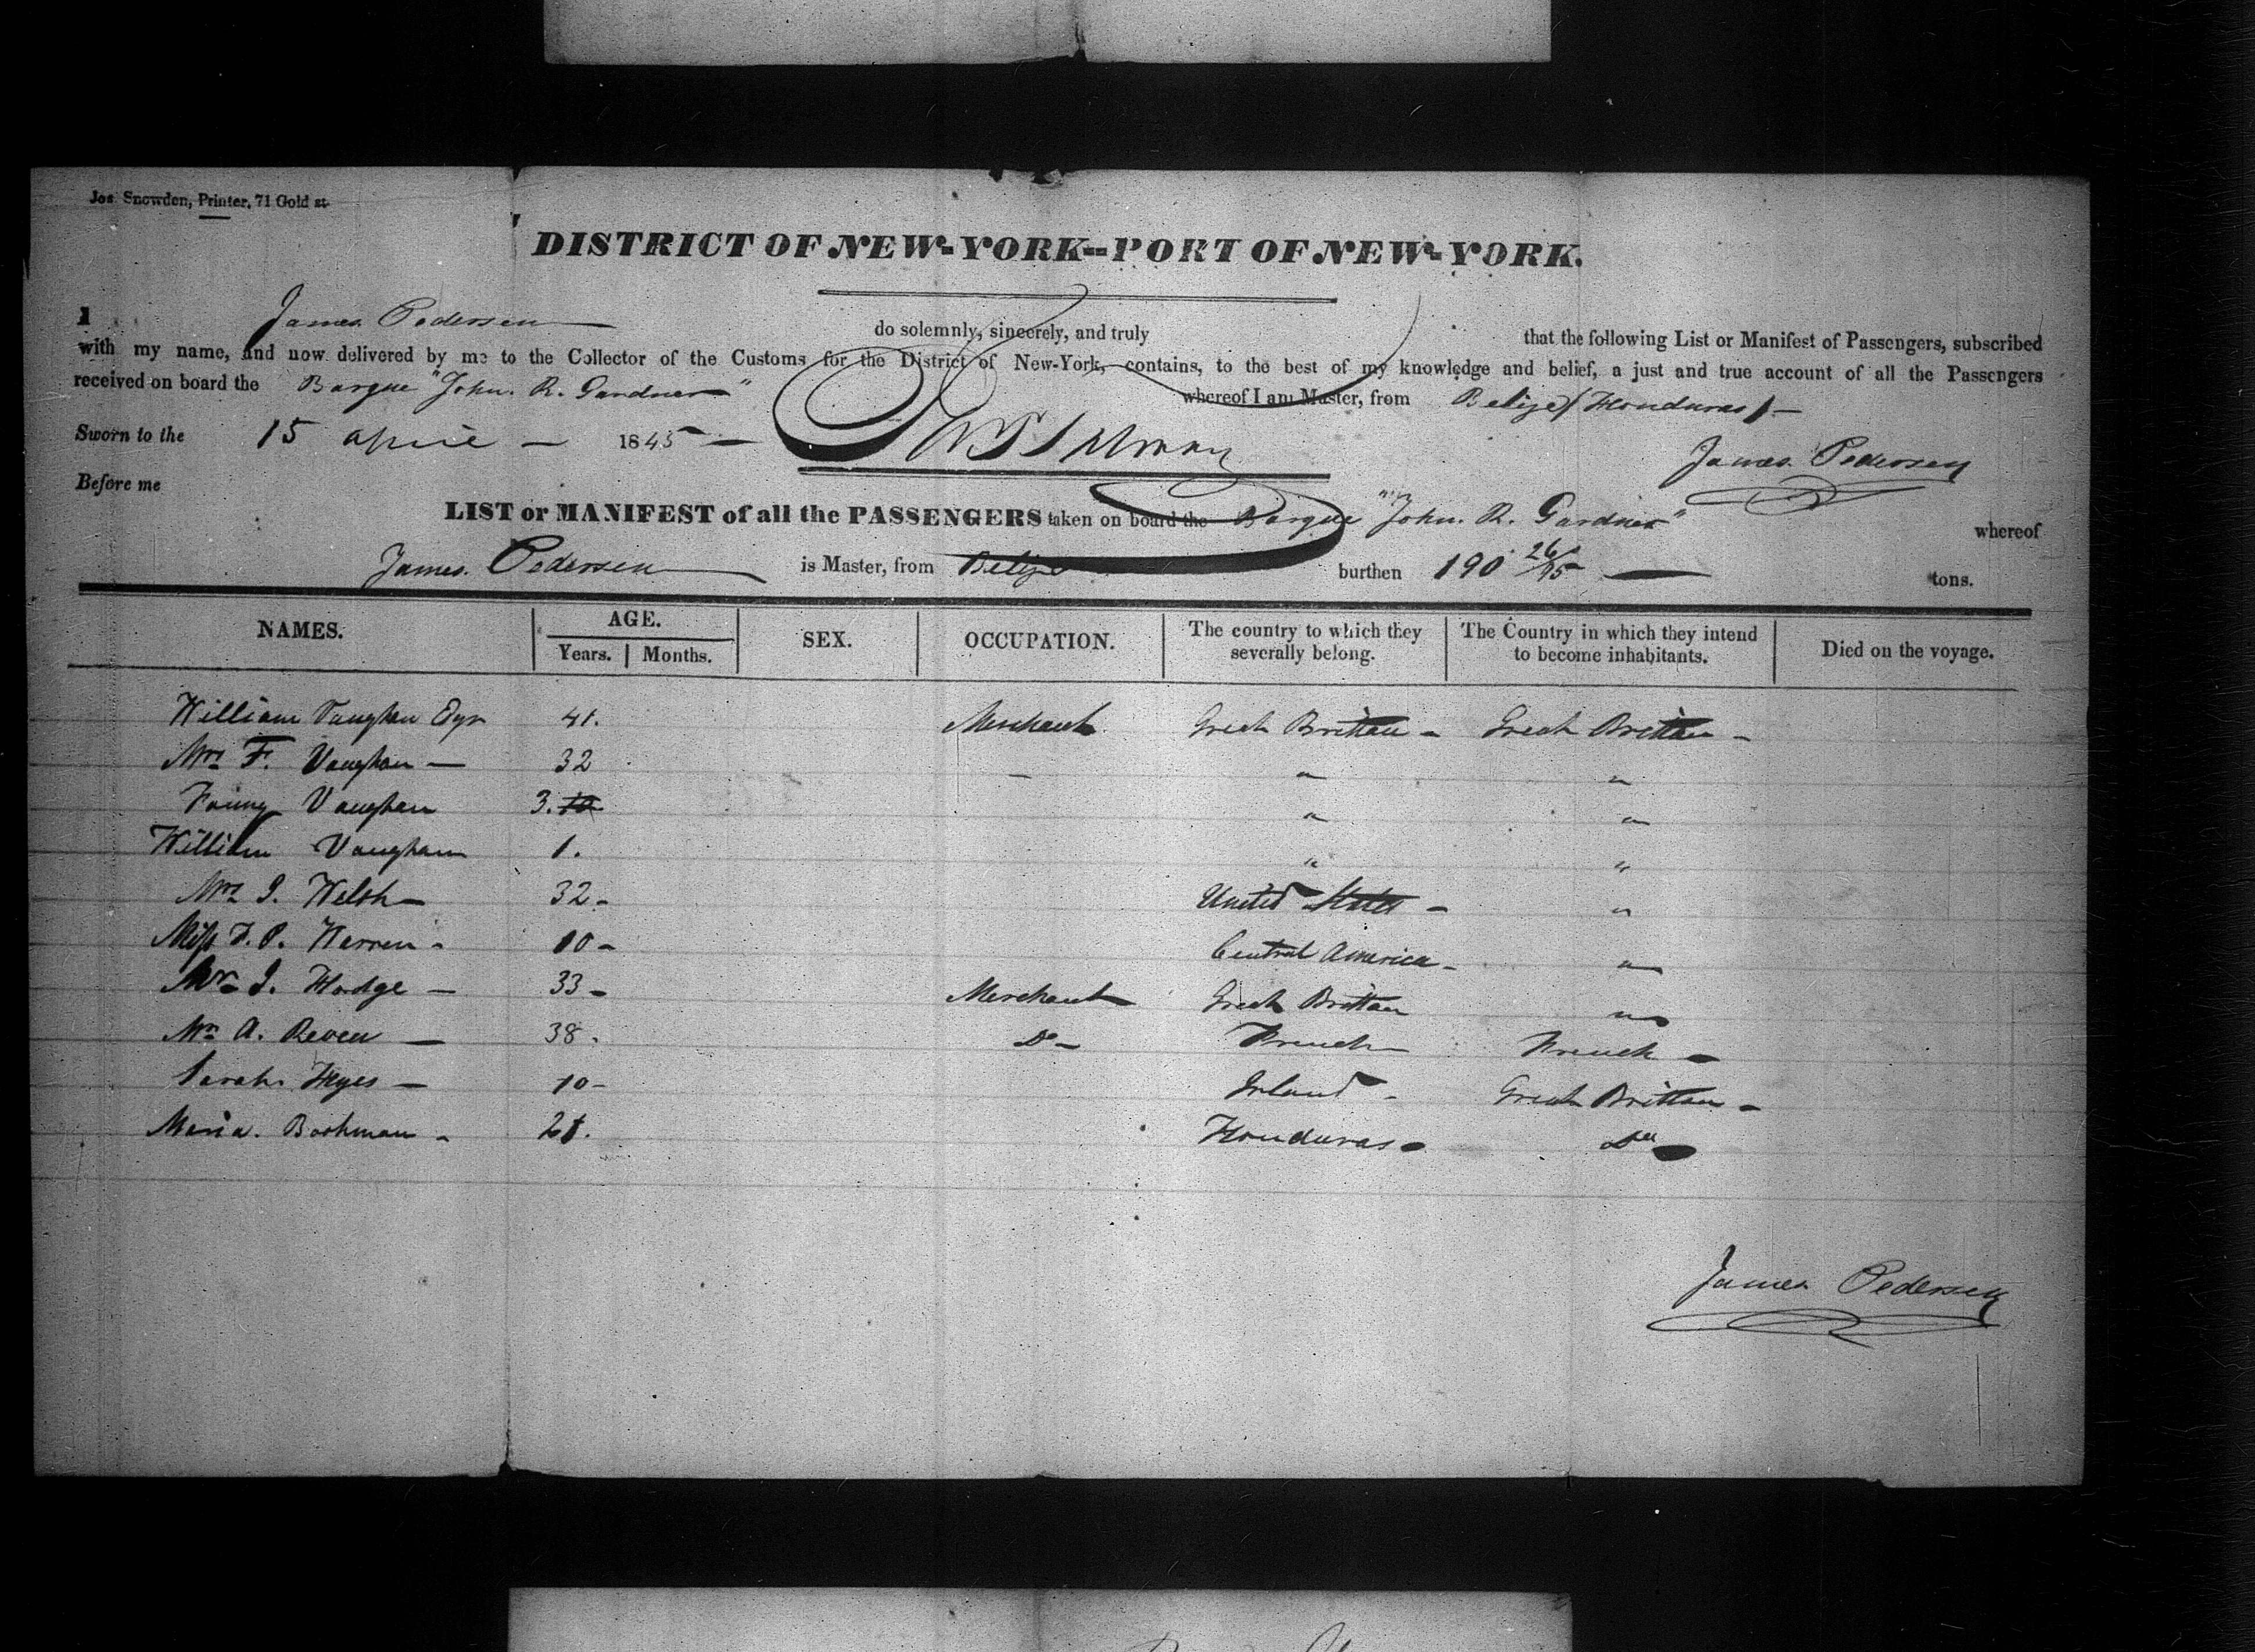 Jos. Snowden, Printer, 71 Gold st.
DISTRICT OF NEW-YORK--PORT OF NEW-YORK.
I James Pedersen do solemnly, sincerely, and truly that the following List or Manifest of Passengers, subscribed
with my name, and now delivered by me to the Collector of the Customs for the District of New-York, contains, to the best of my knowledge and belief, a just and true account of all the Passengers
received on board the Barque "John. R. Gardner" whereof I am Master, from Belize (Honduras)
Sworn to the 15 April 1845
James Pedersen
Before me
LIST or MANIFEST of all the PASSENGERS taken on board the Barque "John. R. Gardner" whereof
James. Pedersen is Master, from Belize burthen 190 26/95 tons.
NAMES. AGE. Years. Months. SEX. OCCUPATION. The country to which they severally belong. The Country in which they intend to become inhabitants. Died on the voyage.
William Vaughan Esqr 41. Merchant Great Brittan - Great Brittan -
Mrs F. Vaughan - 32 - " "
Fanny Vaughan 3. " "
William Vaughan 1. " "
Mrs J. Welsh - 32 - United States - "
Miss F. P. Warren - 10 - Central America - "
Mr J. Hodge - 33 - Merchant Great Brittan "
Mr A. - 38 - Do - French French -
Sarah Hyes - 10 - Irland - Great Brittan -
Maria. - 21. Honduras Do
James Pedersen